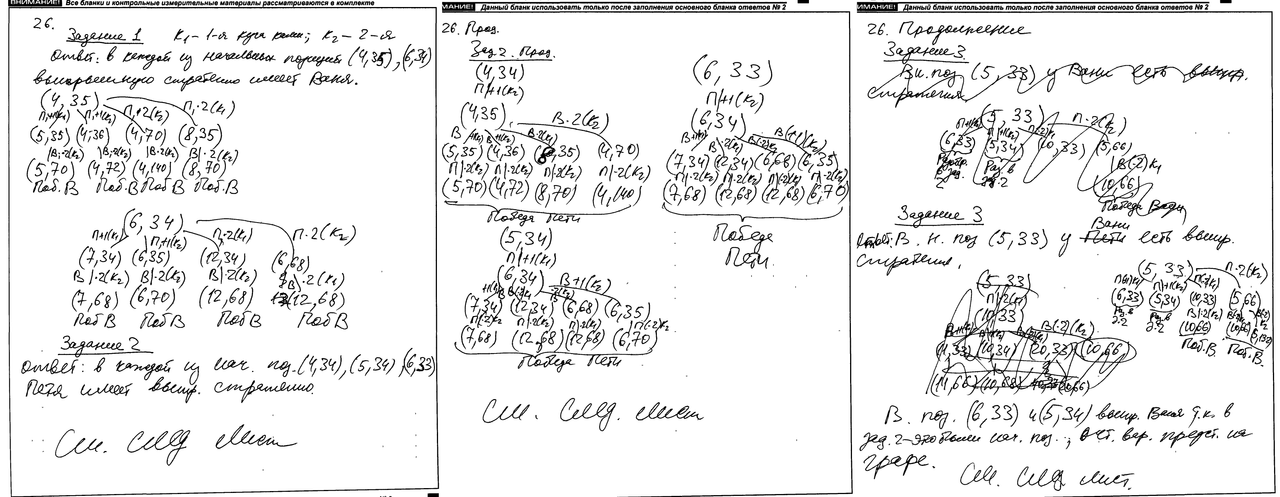 ВНИМАНИЕ! Все бланки и контрольные измерительные материалы рассматриваются в комплекте
26.
Задание 1 K₁ - 1-я куча камн; K₂ - 2-я
Ответ: в каждой из начальных позиций (4,35), (6,34)
выигрышную стратегию имеет Ваня.
(4,35)
П,+1(K₁) П,+1(K₂) П,·2(K₂) П,·2(K₁)
(5,35) (4,36) (4,70) (8,35)
В,·2(K₂) В,·2(K₂) В·2(K₂) В|·2(K₂)
(5,70) (4,72) (4,140) (8,70)
Поб. В Поб. В Поб. В Поб. В
(6,34)
П+1(K₁) П,+1(K₂) П,·2(K₁) П·2(K₂)
(7,34) (6,35) (12,34) (6,68)
В|·2(K₂) В|·2(K₂) В|·2(K₂) В|·2(K₁)
(7,68) (6,70) (12,68) (12,68)
Поб В Поб В Поб В Поб В
Задание 2
Ответ: в каждой из нач. поз. (4,34), (5,34), (6,33)
Петя имеет выигр. стратегию.
См. след лист
МАНИЕ! Данный бланк использовать только после заполнения основного бланка ответов № 2
26. Прод.
Зад 2. Прод.
(4,34)
П|+1(K₂)
(4,35)
В·2(K₂)
(5,35) (4,36) (8,35) (4,70)
П|·2(K₂) П|·2(K₂) П|·2(K₂) П|·2(K₂)
(5,70) (4,72) (8,70) (4,140)
Победа Пети
(5,34)
П|+1(K₁)
(6,34)
В+1(K₂)
(7,34) (12,34) (6,68) (6,35)
(7,68) (12,68) (12,68) (6,70)
Победа Пети
(6,33)
П|+1(K₂)
(6,34)
В(+1)(K₂)
(7,34) (12,34) (6,68) (6,35)
П|·2(K₂) П|·2(K₂) П|·2(K₁) П|·2(K₂)
(7,68) (12,68) (12,68) (6,70)
Победа
Пети.
См. след лист
ИМАНИЕ! Данный бланк использовать только после заполнения основного бланка ответов № 2
26. Продолжение
Задание 3.
В н. поз (5,33) у Вани есть выигр.
стратегия
(5,33)
П·2(K₂)
(6,33) (5,34) (10,33) (5,66)
В(·2)K₁
(10,66)
Победа
Вани
Задание 3
Ответ: В. н. поз (5,33) у Пети есть выигр.
стратегия.
(5,33)
(10,33)
В(·2)(K₂)
(11,33) (10,34) (20,33) (10,66)
(11,66) (10,68)
(5,33)
П·2(K₂)
(6,33) (5,34) (10,33) (5,66)
(10,66) (10,66)
Поб. В. Поб. В.
В. поз. (6,33) и (5,34) выигр. Ваня т.к. в
зад. 2 - это были нач. поз.,
графе.
См. след лист.